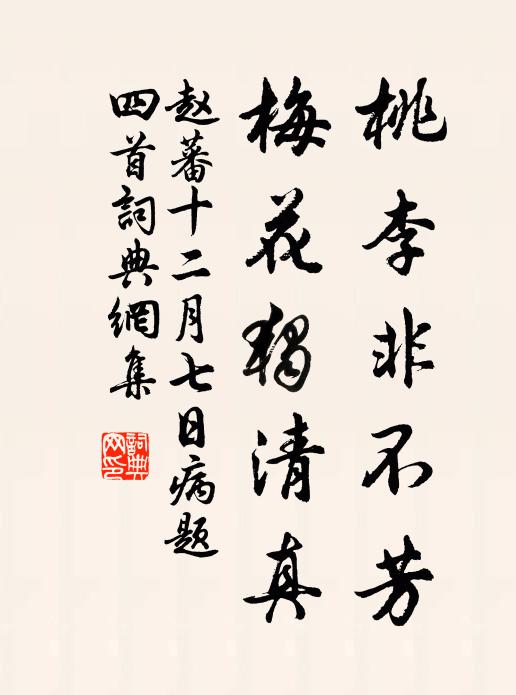 桃李非不芳
梅花独清真
赵蕃十二月七日病题
四首詞典網集
詞典网印